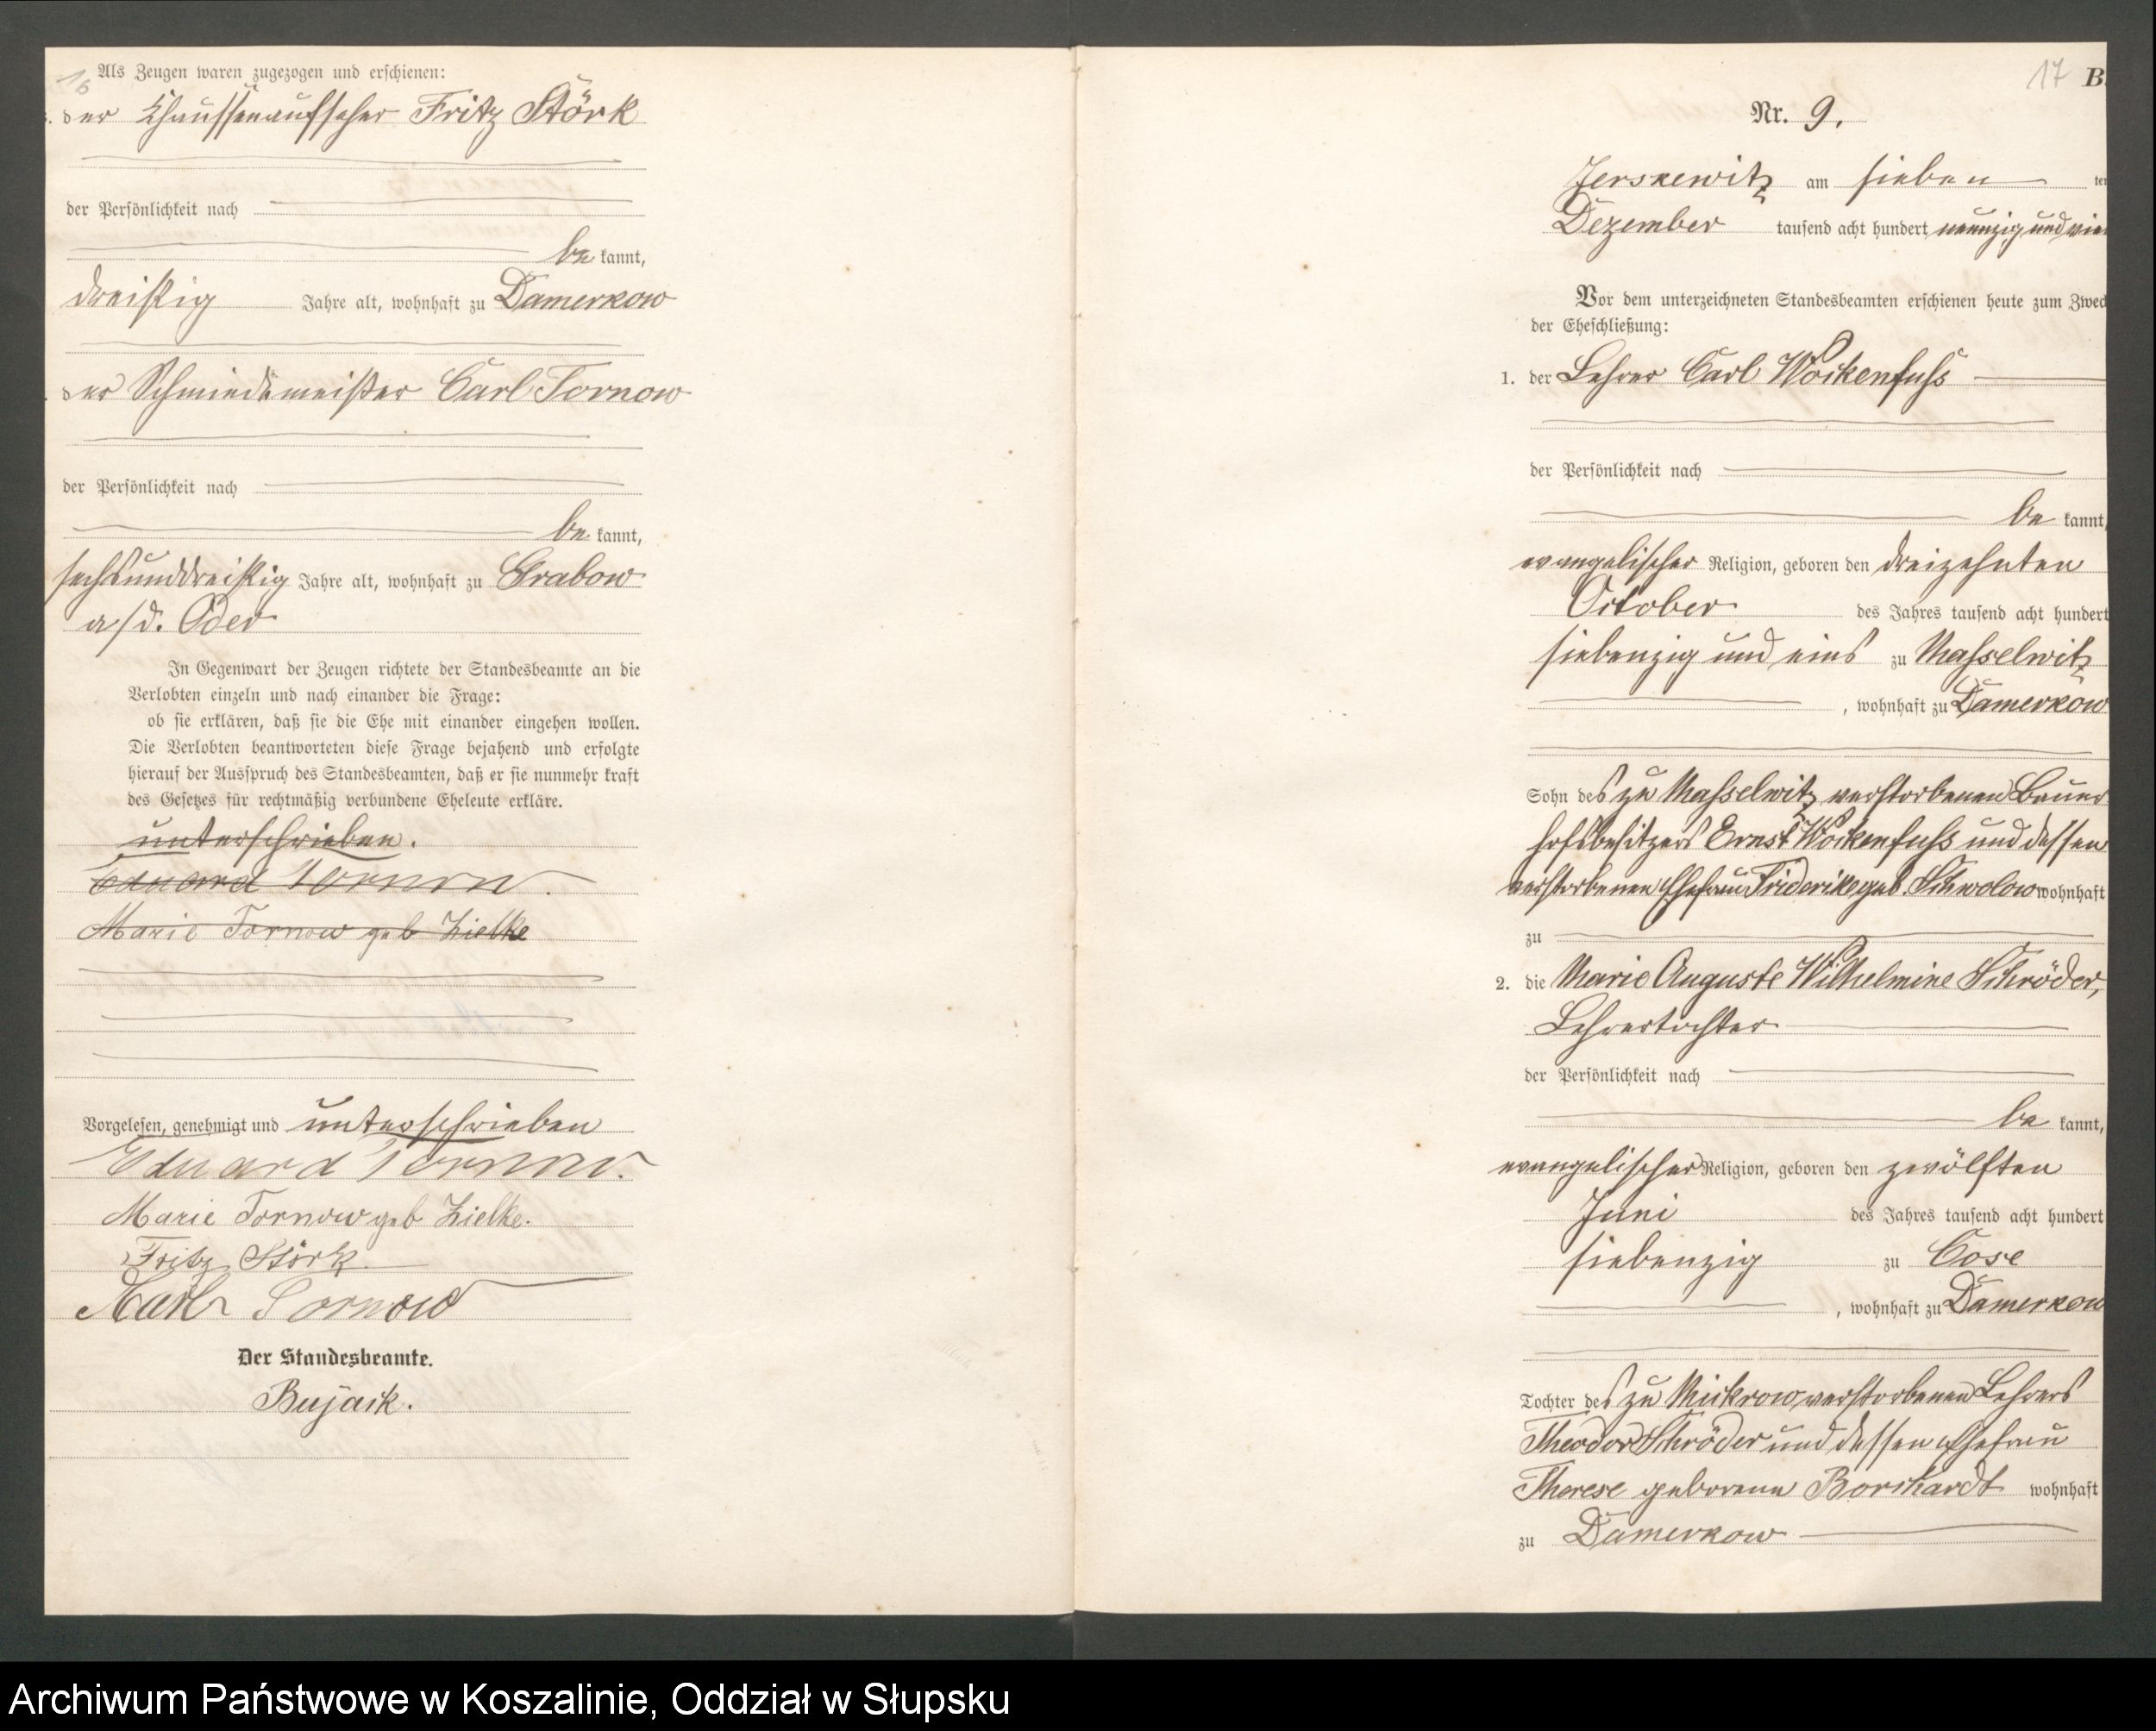 16
Als Zeugen waren zugezogen und erschienen:
der Chausseeaufseher Fritz Störk
der Persönlichkeit nach
be kannt,
dreißig Jahre alt, wohnhaft zu Damerkow
der Schmiedemeister Carl Tornow
der Persönlichkeit nach
be kannt,
sechsunddreißig Jahre alt, wohnhaft zu Grabow
a/d. Oder
In Gegenwart der Zeugen richtete der Standesbeamte an die
Verlobten einzeln und nach einander die Frage:
ob sie erklären, daß sie die Ehe mit einander eingehen wollen.
Die Verlobten beantworteten diese Frage bejahend und erfolgte
hierauf der Ausspruch des Standesbeamten, daß er sie nunmehr kraft
des Gesetzes für rechtmäßig verbundene Eheleute erkläre.
unterschrieben.
Eduard Tornow.
Marie Tornow geb Zielke
Vorgelesen, genehmigt und unterschrieben
Eduard Tornow.
Marie Tornow geb Zielke.
Fritz Störk
Karl Tornow
Der Standesbeamte.
Bujack.
17 B.
Nr. 9.
Jerskewitz am sieben ten
Dezember tausend acht hundert neunzig und vier
Vor dem unterzeichneten Standesbeamten erschienen heute zum Zweck
der Eheschließung:
1. der Lehrer Carl Wockenfuss
der Persönlichkeit nach
be kannt,
evangelischer Religion, geboren den dreizehnten
October des Jahres tausend acht hundert
siebenzig und eins zu Masselwitz
, wohnhaft zu Damerkow
Sohn des zu Masselwitz verstorbenen Bauer
hofsbesitzers Ernst Wockenfuss und dessen
verstorbenen Ehefrau Friderike geb. Schwolow wohnhaft
zu
2. die Marie Auguste Wilhelmine Schröder,
Lehrertochter
der Persönlichkeit nach
be kannt,
evangelischer Religion, geboren den zwölften
Juni des Jahres tausend acht hundert
siebenzig zu Cose
, wohnhaft zu Damerkow
Tochter des zu Mickrow verstorbenen Lehrers
Theodor Schröder und dessen Ehefrau
Therese geborene Borchardt wohnhaft
zu Damerkow
Archiwum Państwowe w Koszalinie, Oddział w Słupsku